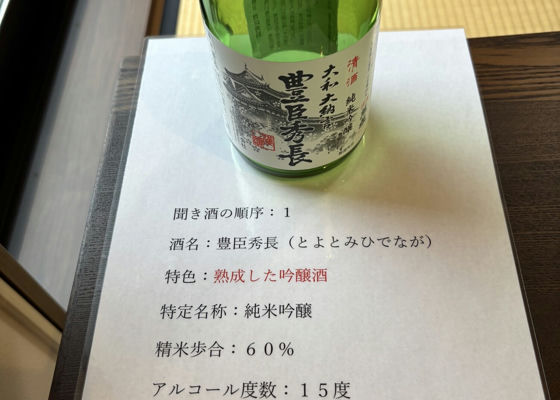 清酒
大和大納言
豊臣秀長
純米吟醸
聞き酒の順序：１
酒名：豊臣秀長（とよとみひでなが）
特色：熟成した吟醸酒
特定名称：純米吟醸
精米歩合：６０％
アルコール度数：１５度